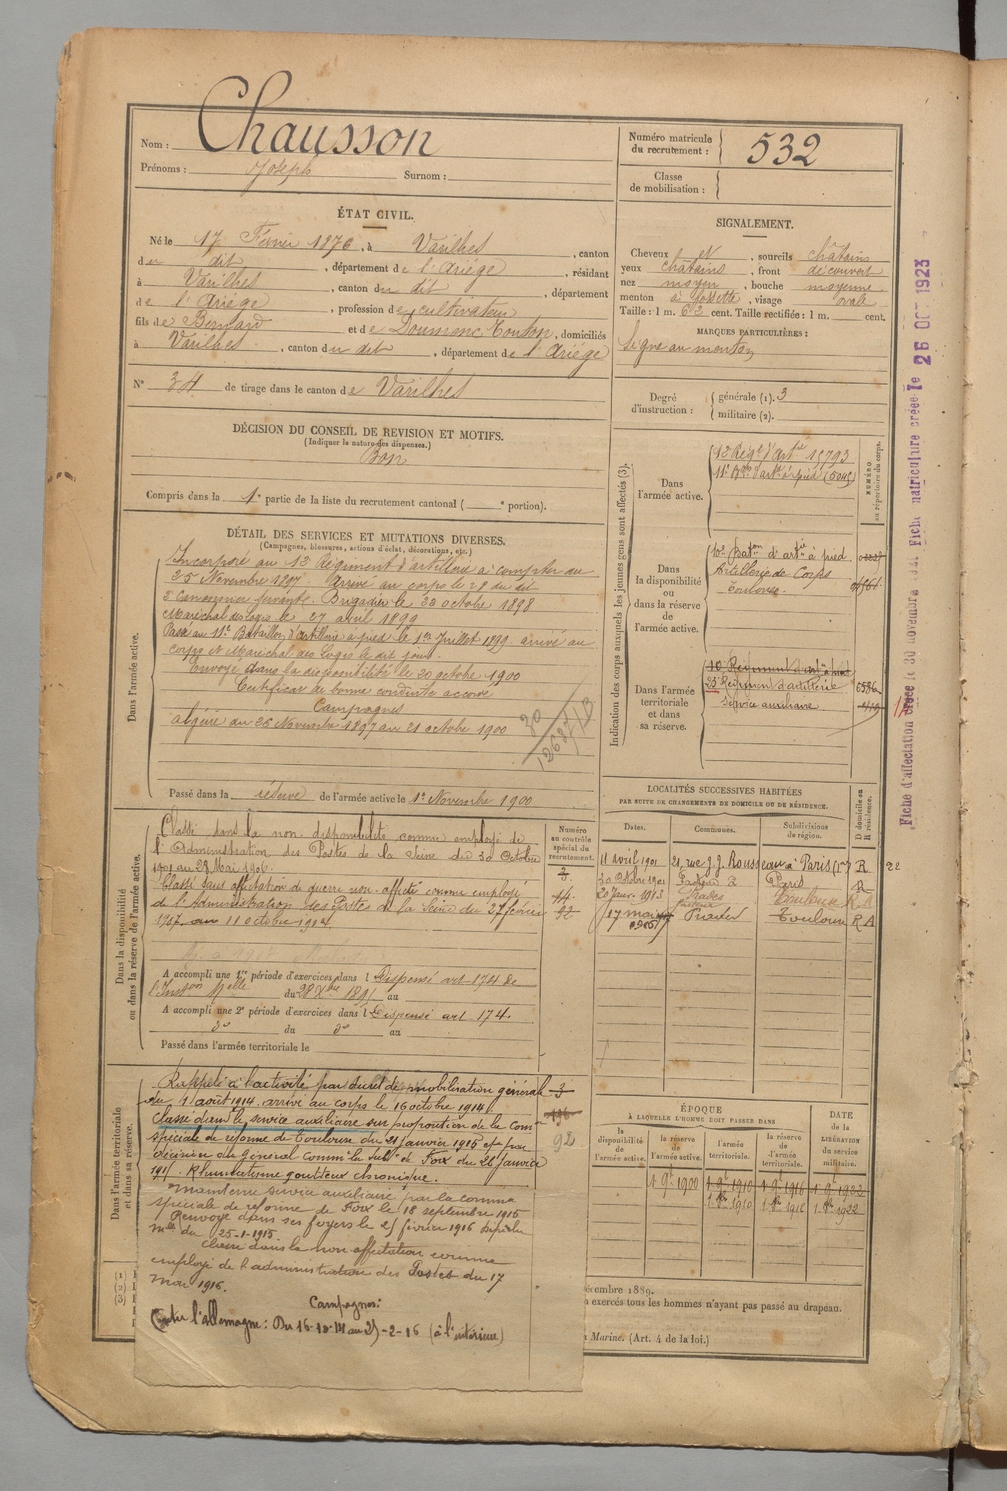 Nom : Chausson
Prénoms : Joseph Surnom :
Numéro matricule du recrutement : 532
Classe de mobilisation :
ÉTAT CIVIL.
Né le 17 Février 1876, à Varilhes, canton
du dit, département de l'Ariége, résidant
à Varilhes, canton du dit, département
de l'Ariége, profession de cultivateur
fils de Bernard et de Doumenc Touton, domiciliés
à Varilhes, canton du dit, département de l'Ariége
N° 34 de tirage dans le canton de Varilhes
SIGNALEMENT.
Cheveux et, sourcils châtains
yeux châtains, front découvert
nez moyen, bouche moyenne
menton à fossette, visage ovale
Taille : 1 m. cent. Taille rectifiée : 1 m. cent.
MARQUES PARTICULIÈRES :
Signe au menton
Degré d'instruction : générale (1). 3
militaire (2).
DÉCISION DU CONSEIL DE REVISION ET MOTIFS.
(Indiquer la nature des dispenses.)
Bon
Compris dans la 1e partie de la liste du recrutement cantonal ( e portion).
DÉTAIL DES SERVICES ET MUTATIONS DIVERSES.
(Campagnes, blessures, actions d'éclat, décorations, etc.)
Dans l'armée active.
Incorporé au 12 Régiment d'artillerie à compter du
25 Novembre 1897. Arrivé au corps le 28 du dit
2e Canonnier servant. Brigadier le 22 octobre 1898
Maréchal des logis le 27 avril 1899
Passé au 11e Bataillon d'artillerie à pied le 1er Juillet 1899 arrivé au
corps et Maréchal des Logis le dit jour.
Envoyé dans la disponibilité le 20 octobre 1900
Certificat de bonne conduite accordé
Campagnes
algérie du 25 Novembre 1897 au 21 octobre 1900
Passé dans la réserve de l'armée active le 1er Novembre 1900
Indication des corps auxquels les jeunes gens sont affectés (3).
NUMÉRO au répertoire du corps.
Dans l'armée active.
Dans la disponibilité ou dans la réserve de l'armée active.
10e Baton d'artie à pied
Artillerie de Corps
Toulouse.
Dans l'armée territoriale et dans sa réserve.
10 Régiment d'art à pied
23 Régiment d'artillerie
Service auxiliaire
Dans la disponibilité ou dans la réserve de l'armée active.
Classé dans la non disponibilité comme employé de
l'Administration des Postes de la Seine du 30 Octobre
1901 au 28 Mai 1906.
Classé sans affectation de guerre non-affecté comme employé
de l'Administration des Postes de la Seine du 27 février
1907 au 11 octobre
Numéro au contrôle spécial du recrutement.
3
14
22
A accompli une 1re période d'exercices dans l Dispensé art 174 de
l'Inston Melle du 28 Xbre au
A accompli une 2e période d'exercices dans l Dispensé art 174.
do du do au
Passé dans l'armée territoriale le
LOCALITÉS SUCCESSIVES HABITÉES
PAR SUITE DE CHANGEMENTS DE DOMICILE OU DE RÉSIDENCE.
Dates. Communes. Subdivisions de région. D domicile ou R résidence.
11 avril 1901 21, rue J. J. Rousseau à Paris (1er) R 22
30 Octobre 1901 Facteur Paris R
20 Janv. 1913 Prades Toulouse R A
17 mai Toulouse R A
Dans l'armée territoriale et dans sa réserve.
Rappelé à l'activité par décret de mobilisation générale
du 1 août 1914. arrivé au corps le 16 octobre 1914.
Classé dans le service auxiliaire sur proposition de la Com
spéciale de réforme de Toulouse du 21 janvier 1915 et par
décision du général commt la subon de Foix du 26 janvier
1915. Rhumatisme goutteux chronique.
3
196
92
Maintenu service auxiliaire par la comme
spéciale de réforme de Foix le 18 septembre 1915
Renvoyé dans ses foyers le 25 février 1916 dépêche
melle du 25-1-1915.
Classé dans la non affectation comme
employé de l'administration des Postes du 17
mai 1916.
Campagnes:
Contre l'allemagne: Du 16-10-14 au 25-2-16 (à l'intérieur)
ÉPOQUE
À LAQUELLE L'HOMME DOIT PASSER DANS
la disponibilité de l'armée active. la réserve de l'armée active. l'armée territoriale. la réserve de l'armée territoriale.
DATE DE LA LIBÉRATION DU service militaire.
1 9e 1900 1 9e 1910 1 9e 1916 1 9e 1922
1 Xbre 1910 1 Xbre 1916 1 Xbre 1922
(1)
(2)
(3)
décembre 1889.
exercés tous les hommes n'ayant pas passé au drapeau.
Marine. (Art. 4 de la loi.)
Fiche d'affectation créée le 30 novembre 1921. Fiche matriculture créée le 26 OCT 1923